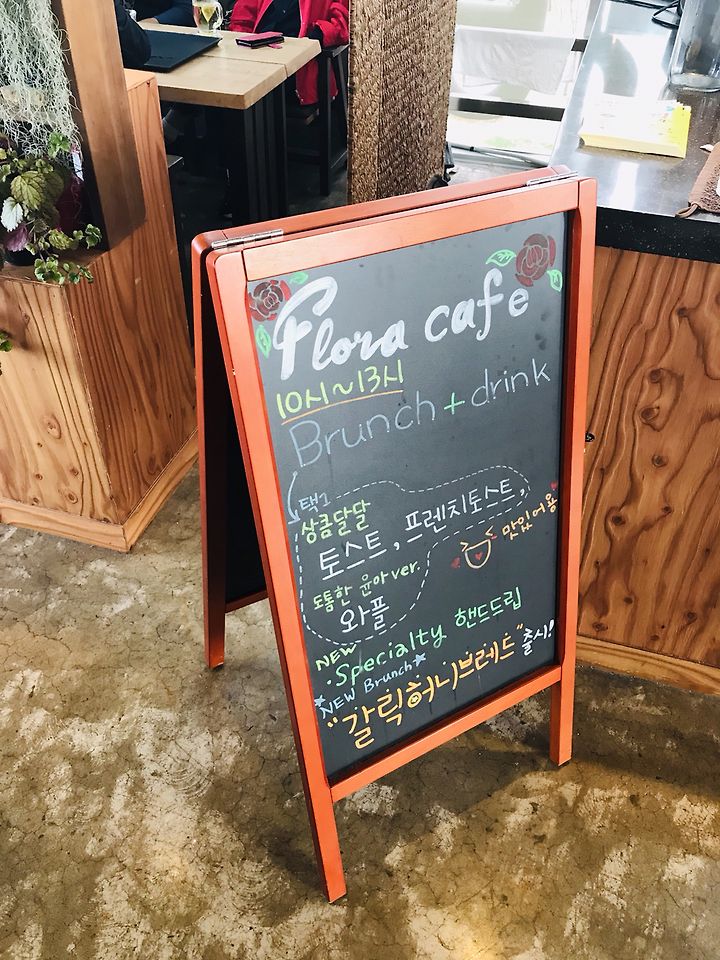 Flora cafe
10시~13시
Brunch + drink
택1
상큼달달
토스트, 프렌치토스트,
맛있어용
도톰한 윤아 ver.
와플
NEW
·Specialty 핸드드립
NEW Brunch
"갈릭허니브레드" 출시!